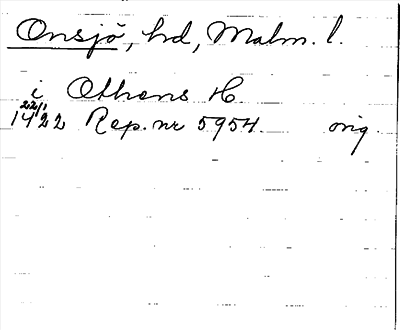 Onsjö, hd, Malm. l.
i Othens H
22/1
1422 Rep. nr 5954. orig.